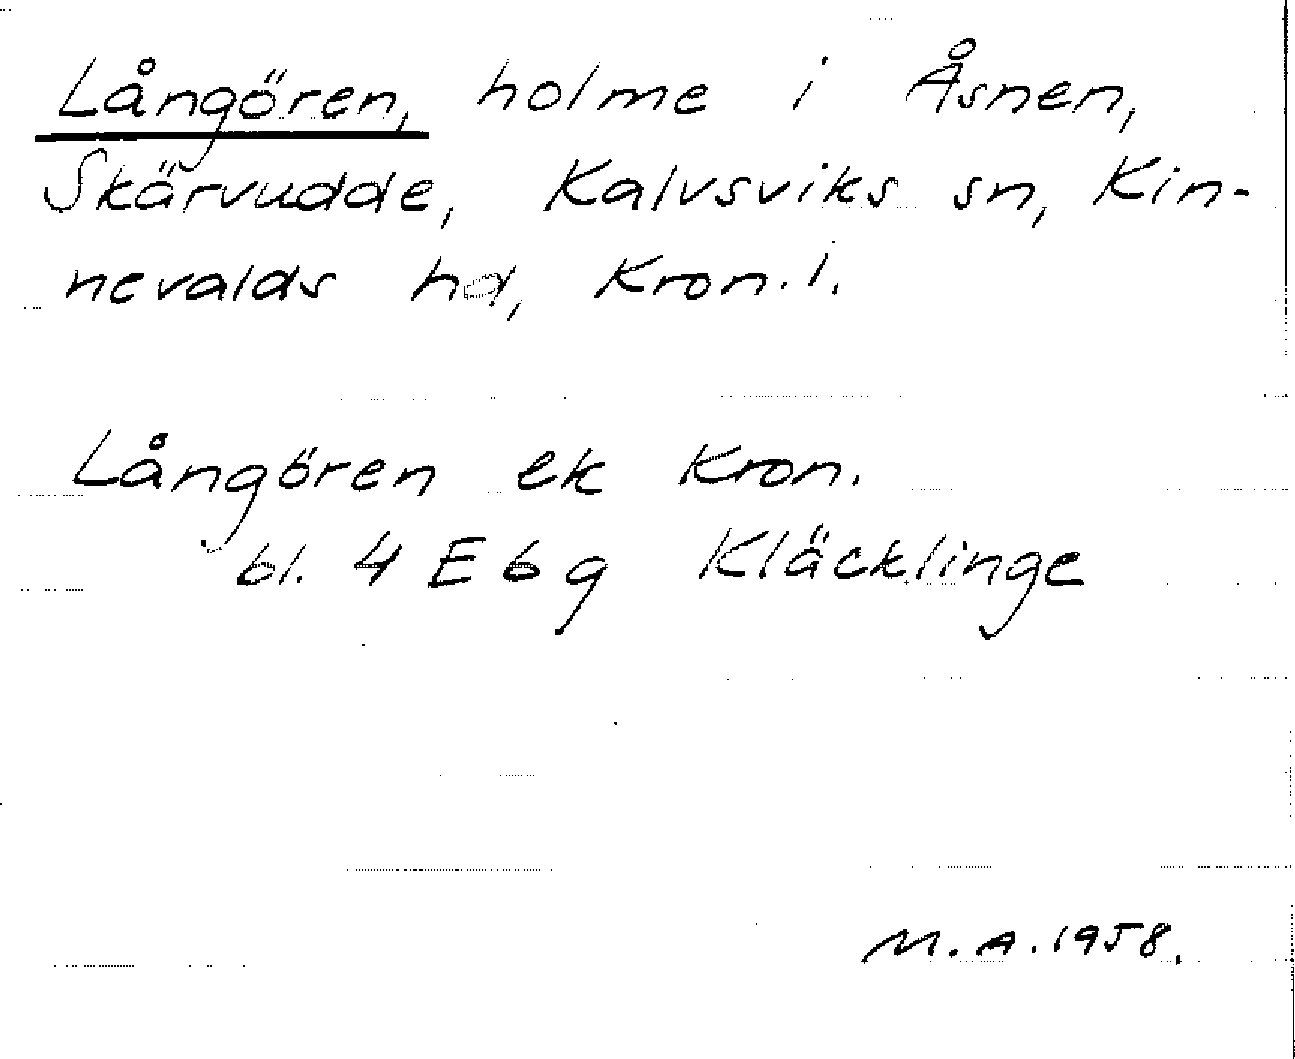 Långören, holme i Åsnen,
Skärvudde, Kalvsviks sn, Kin-
nevalds hd, Kron. l.
Långören ek Kron.
bl. 4 E 6 g Kläcklinge
M. A. 1958.